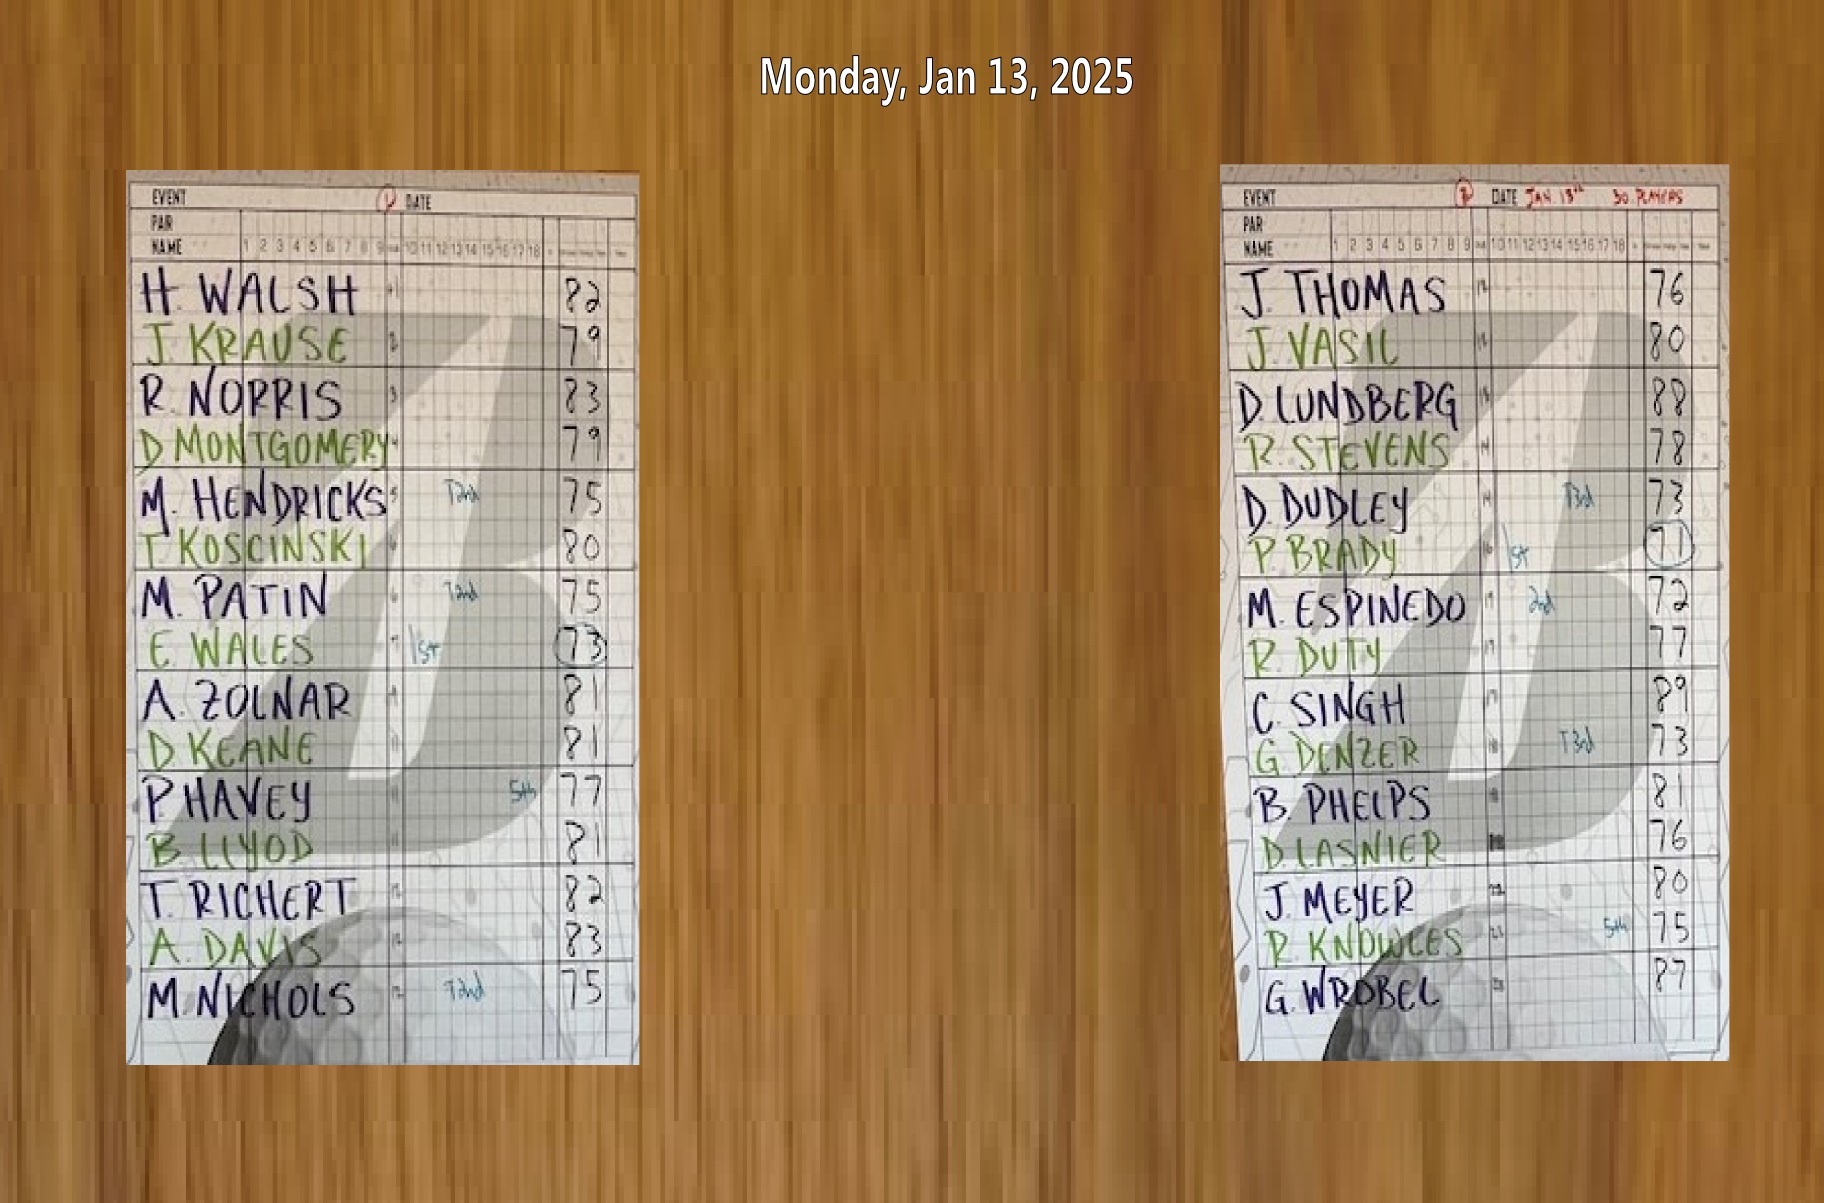 Monday, Jan 13, 2025
EVENT DATE
PAR
NAME 1 2 3 4 5 6 7 8 9 10 11 12 13 14 15 16 17 18
H. WALSH 82
J. KRAUSE 2 79
R. NORRIS 3 83
D MONTGOMERY 79
M. HENDRICKS 5 T2nd 75
T KOSCINSKI 80
M. PATIN T2nd 75
E WALES 1st 73
A. ZOLNAR 81
D KEANE 81
P. HAVEY 5th 77
B LLYOD 81
T. RICHERT 82
A. DAVIS 83
M. NICHOLS T2nd 75
EVENT DATE JAN 13th 30 PLAYERS
PAR
NAME 1 2 3 4 5 6 7 8 9 10 11 12 13 14 15 16 17 18
J. THOMAS 76
J. VASIL 80
D. LUNDBERG 88
R. STEVENS 78
D. DUDLEY T3rd 73
P. BRADY 1st 71
M. ESPINEDO 2nd 72
R. DUTY 77
C. SINGH 89
G DENZER T3rd 73
B. PHELPS 81
D. LASNIER 76
J. MEYER 80
R. KNOWLES 5th 75
G. WROBEL 87